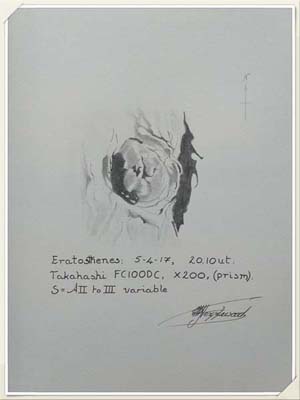 N
Eratosthenes: 5-4-17, 20.10ut.
Takahashi FC100DC, x200, (prism).
S=AII to III variable